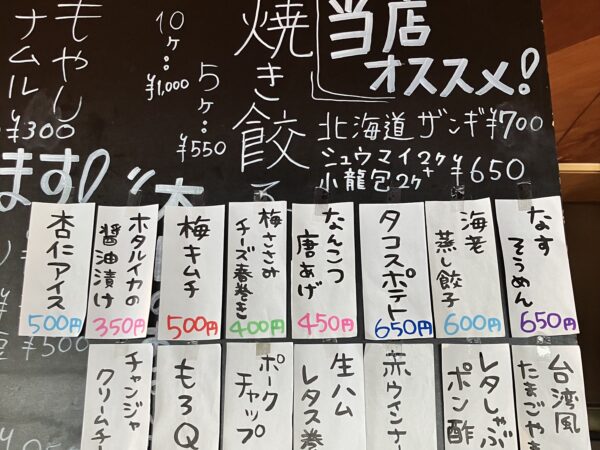 当店
オススメ!
北海道 ザンギ ¥700
シュウマイ2ケ+
小龍包2ケ
¥650
焼き餃
5ケ:
¥550
10ケ:
¥1,000
もやし
ナムル
¥300
ます!
なす
そうめん
650円
海老
蒸し餃子
600円
タコスポテト
650円
なんこつ
唐あげ
450円
梅ささみ
チーズ春巻き
400円
梅キムチ
500円
ホタルイカの
醤油漬け
350円
杏仁アイス
500円
¥500
台湾風
たまごや
レタしゃぶ
ポン酢
赤ウインナー
生ハム
レタス巻
ポーク
チャップ
もろQ
チャンジャ
クリームチー